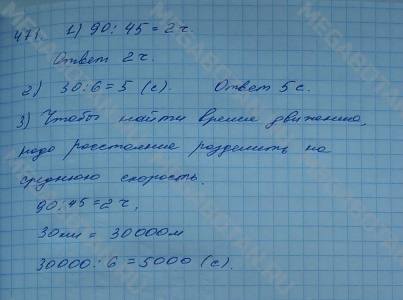 471. 1) 90 : 45 = 2 ч.
Ответ 2 ч.
2) 30 : 6 = 5 (с). Ответ 5 с.
3) Чтобы найти время движения,
надо расстояние разделить на
среднюю скорость.
90 : 45 = 2 ч,
30км = 30000м
30000 : 6 = 5000 (с).